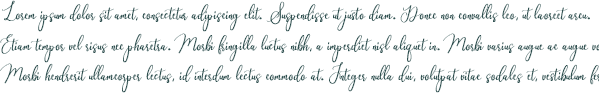 Lorem ipsum dolor sit amet, consectetur adipiscing elit. Suspendisse ut justo diam. Donec non convallis leo, ut laoreet arcu.
Etiam tempor vel risus nec pharetra. Morbi fringilla luctus nibh, a imperdiet nisl aliquet in. Morbi varius augue ac augue
Morbi hendrerit ullamcorper lectus, id interdum lectus commodo at. Integer nulla dui, volutpat vitae sodales et, vestibulum